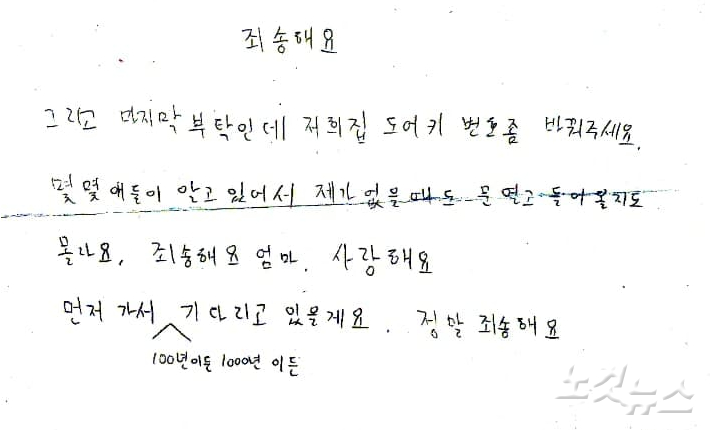 죄송해요
그리고 마지막 부탁인데 저희집 도어키 번호좀 바꿔주세요.
몇몇 애들이 알고 있어서 제가 없을때도 문열고 들어올지도
몰라요. 죄송해요 엄마. 사랑해요
먼저 가서 기다리고 있을게요. 정말 죄송해요
100년이든 1000년 이든
노컷뉴스